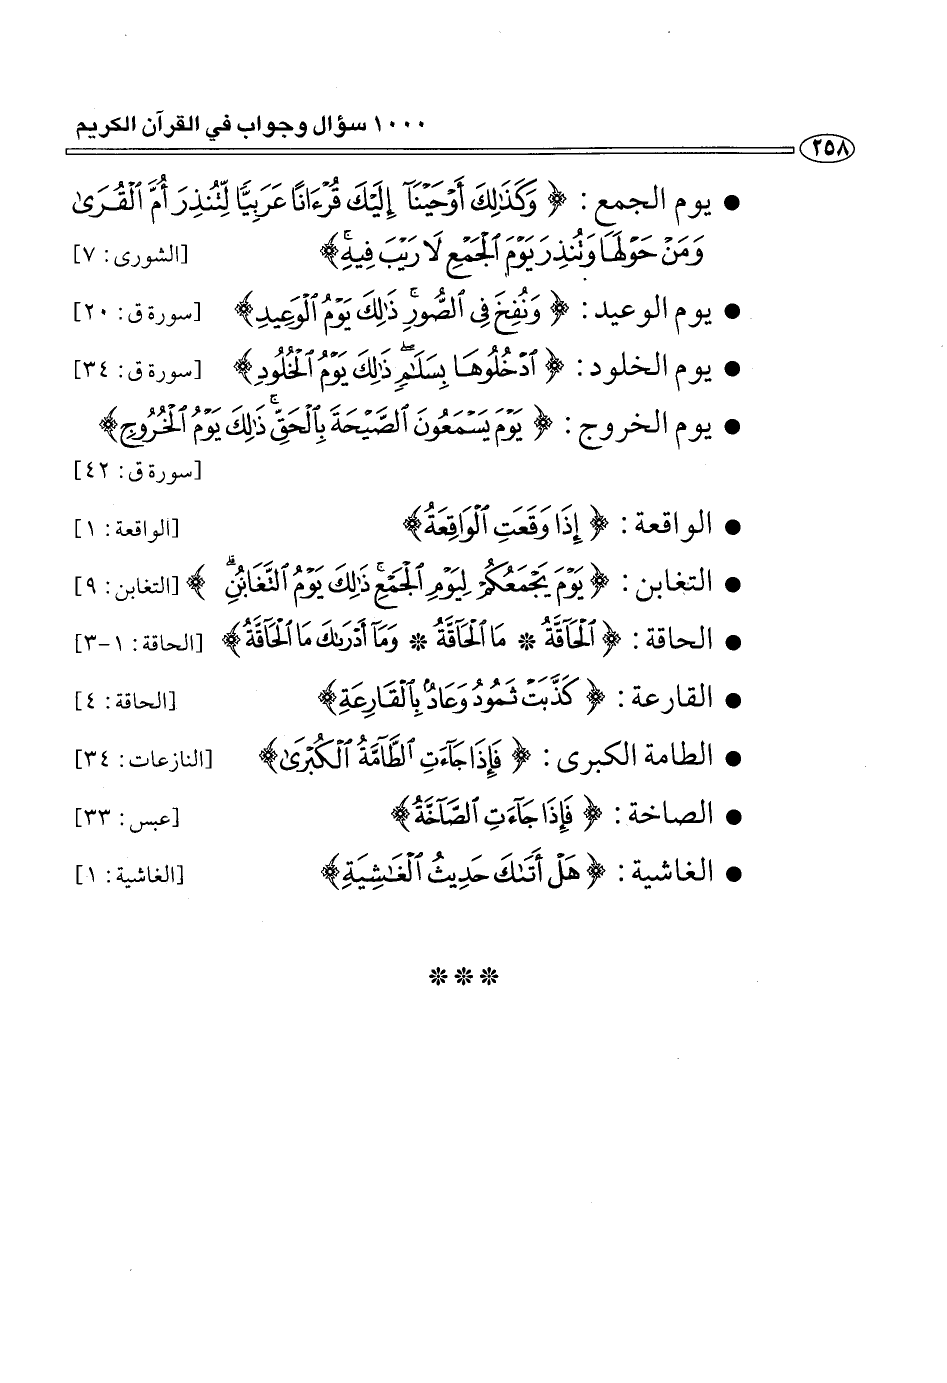 ١٠٠٠ سؤال وجواب في القرآن الكريم
٢٥٨
● يوم الجمع : ﴿ وَكَذَٰلِكَ أَوْحَيْنَآ إِلَيْكَ قُرْءَانًا عَرَبِيًّا لِّتُنذِرَ أُمَّ ٱلْقُرَىٰ
وَمَنْ حَوْلَهَا وَتُنذِرَ يَوْمَ ٱلْجَمْعِ لَا رَيْبَ فِيهِ ۚ ﴾ [الشورى: ٧]
● يوم الوعيد : ﴿ وَنُفِخَ فِى ٱلصُّورِ ۚ ذَٰلِكَ يَوْمُ ٱلْوَعِيدِ ﴾ [سورة ق: ٢٠]
● يوم الخلود : ﴿ ٱدْخُلُوهَا بِسَلَٰمٍ ۖ ذَٰلِكَ يَوْمُ ٱلْخُلُودِ ﴾ [سورة ق: ٣٤]
● يوم الخروج : ﴿ يَوْمَ يَسْمَعُونَ ٱلصَّيْحَةَ بِٱلْحَقِّ ۚ ذَٰلِكَ يَوْمُ ٱلْخُرُوجِ ﴾
[سورة ق: ٤٢]
● الواقعة : ﴿ إِذَا وَقَعَتِ ٱلْوَاقِعَةُ ﴾ [الواقعة: ١]
● التغابن : ﴿ يَوْمَ يَجْمَعُكُمْ لِيَوْمِ ٱلْجَمْعِ ۖ ذَٰلِكَ يَوْمُ ٱلتَّغَابُنِ ۗ ﴾ [التغابن: ٩]
● الحاقة : ﴿ ٱلْحَآقَّةُ * مَا ٱلْحَآقَّةُ * وَمَآ أَدْرَىٰكَ مَا ٱلْحَآقَّةُ ﴾ [الحاقة: ١-٣]
● القارعة : ﴿ كَذَّبَتْ ثَمُودُ وَعَادٌۢ بِٱلْقَارِعَةِ ﴾ [الحاقة: ٤]
● الطامة الكبرى : ﴿ فَإِذَا جَآءَتِ ٱلطَّآمَّةُ ٱلْكُبْرَىٰ ﴾ [النازعات: ٣٤]
● الصاخة : ﴿ فَإِذَا جَآءَتِ ٱلصَّآخَّةُ ﴾ [عبس: ٣٣]
● الغاشية : ﴿ هَلْ أَتَىٰكَ حَدِيثُ ٱلْغَٰشِيَةِ ﴾ [الغاشية: ١]
* * *